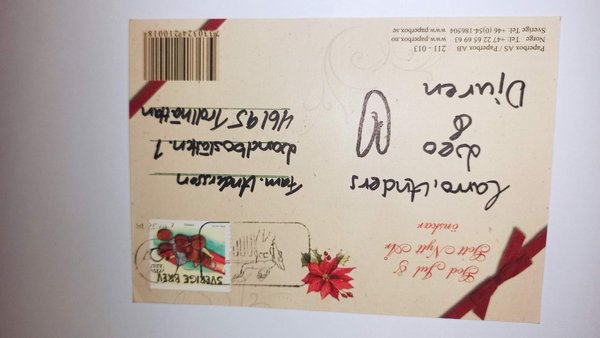 God Jul &
Gott Nytt År
önskar
Carro, Anders
Leo
&
Djuren
SVERIGE BREV
Fam. Andersson
Landboslätten. 7
46195 Trollhättan
211 - 013
Paperbox AS / Paperbox AB
Norge Tel: +47 22 65 69 63 www.paperbox.no
Sverige Tel: +46 (0)54-186504 www.paperbox.se